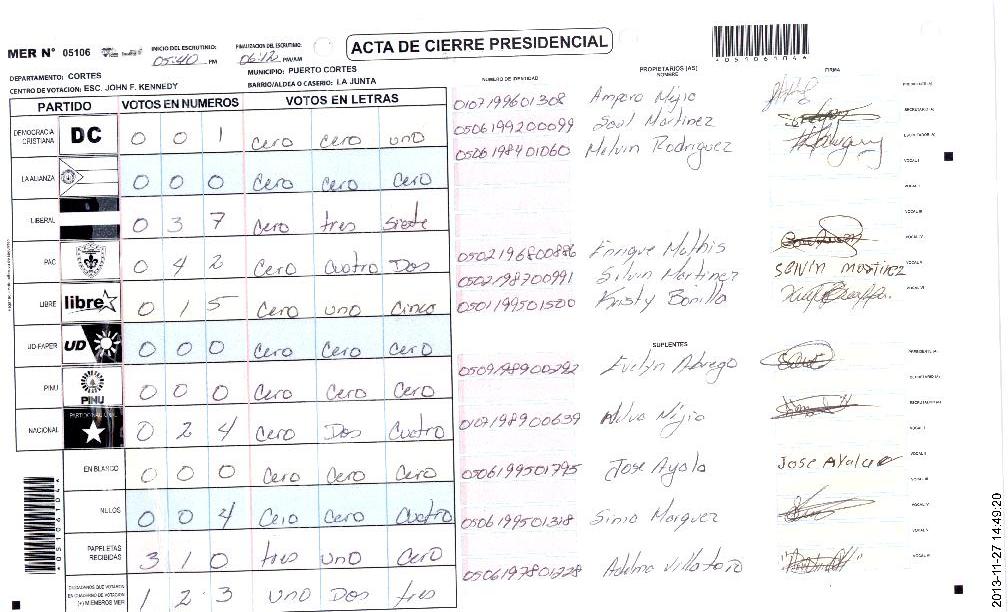 MER N° 05106
INICIO DEL ESCRUTINIO: 05:40 PM
FINALIZACION DEL ESCRUTINIO: 06:12 PM/AM
ACTA DE CIERRE PRESIDENCIAL
*0510610 4*
DEPARTAMENTO: CORTES
MUNICIPIO: PUERTO CORTES
CENTRO DE VOTACION: ESC. JOHN F. KENNEDY
BARRIO/ALDEA O CASERIO: LA JUNTA
PARTIDO VOTOS EN NUMEROS VOTOS EN LETRAS
DEMOCRACIA CRISTIANA DC 0 0 1 Cero Cero uno
LA ALIANZA 0 0 0 Cero Cero Cero
LIBERAL 0 3 7 Cero tres Siete
PAC 0 4 2 Cero Cuatro Dos
LIBRE libre 0 1 5 Cero uno Cinco
UD-FAPER UD 0 0 0 Cero Cero Cero
PINU PINU 0 0 0 Cero Cero Cero
NACIONAL 0 2 4 Cero Dos Cuatro
EN BLANCO 0 0 0 Cero Cero Cero
NULOS 0 0 4 Cero Cero Cuatro
PAPELETAS RECIBIDAS 3 1 0 tres uno Cero
CIUDADANOS QUE VOTARON EN CUADERNO DE VOTACION (+) MIEMBROS MER 1 2 3 uno Dos tres
NUMERO DE IDENTIDAD PROPIETARIOS (AS) NOMBRE FIRMA
0107199601308 Amparo Mejia
0506199200099 Saul Martinez
0506198401060 Melvin Rodriguez
0502196800886 Enrique Mathis
0502198700991 Silvin Martinez Selvin martinez
0501199501500 Kristy Bonilla
SUPLENTES
Evelyn Abrego
0107198900639
0506199501795 Jose Ayala Jose Ayala
0506199501318
0506197801228
2013-11-27 14:49:20